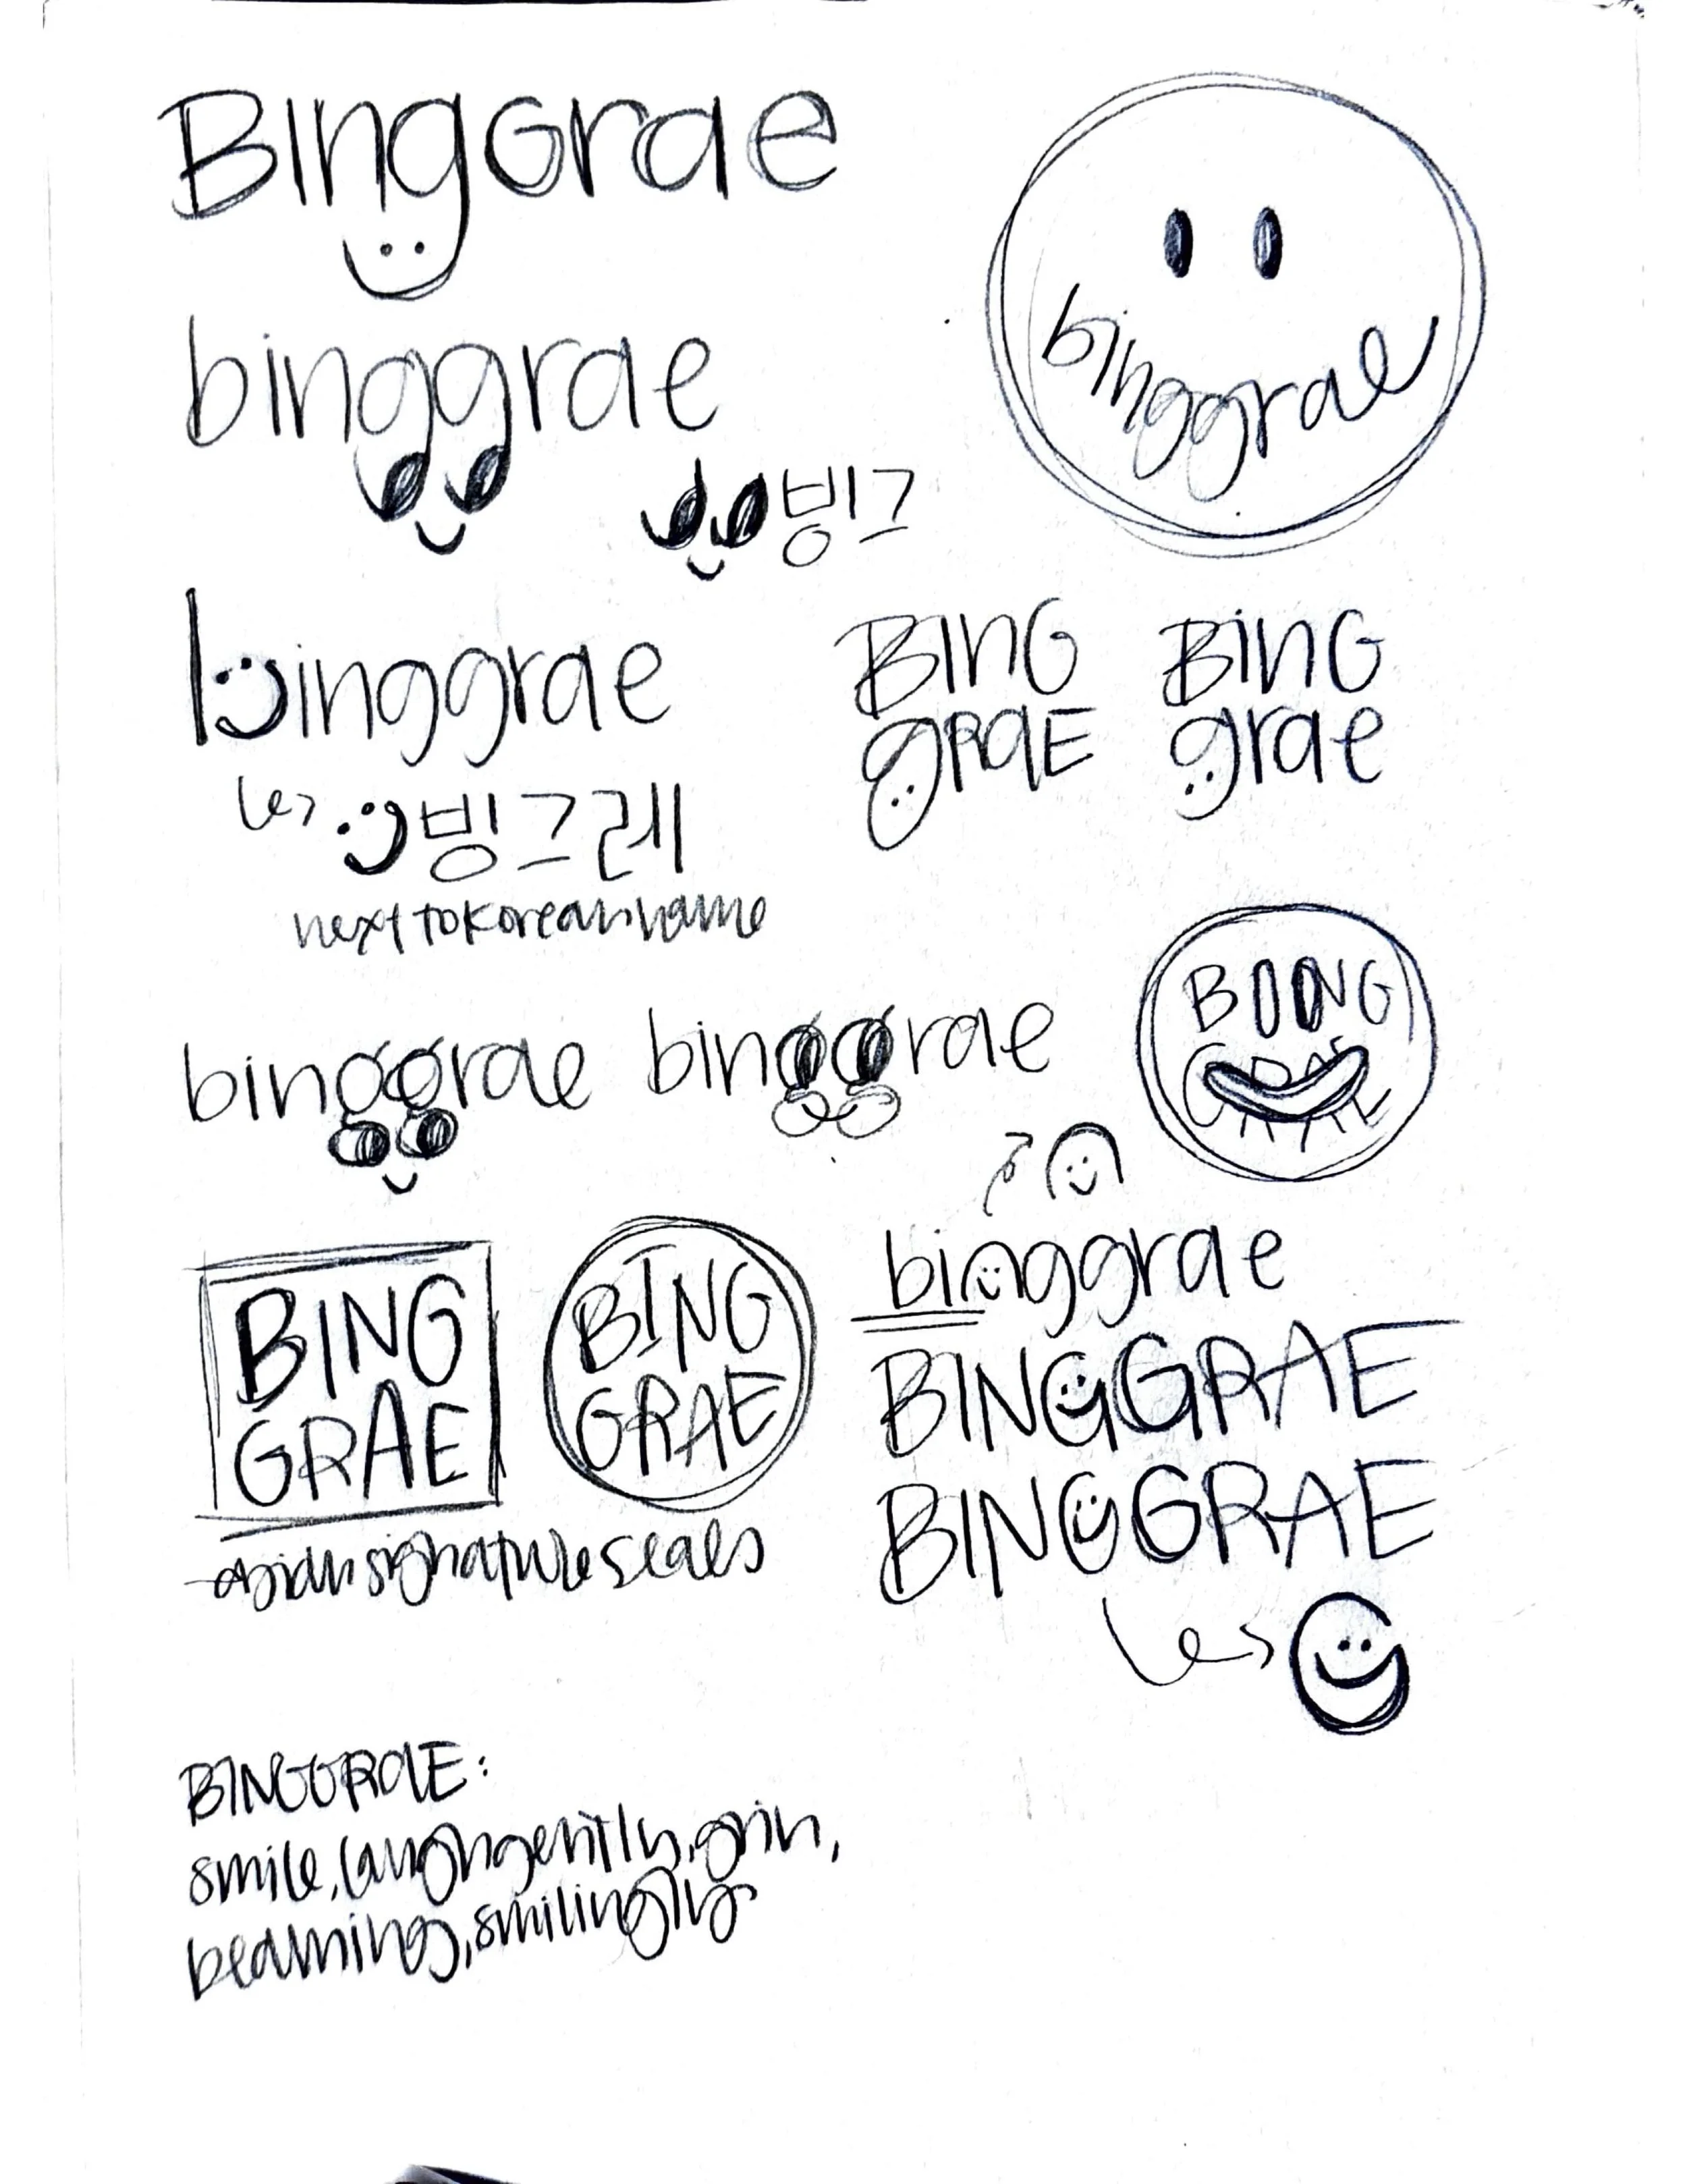 BinGGrae
binggrae
binggrae
빙그
binggrae
BinG
gRaE
BinG
grae
빙그레
next to Korean name
binggrae
binggrae
BIING
GRAE
BING
GRAE
BING
GRAE
binggrae
BINGGRAE
BINGGRAE
asian signature seals
BINGGRaE:
smile, laugh gently, grin,
beaming, smilingly